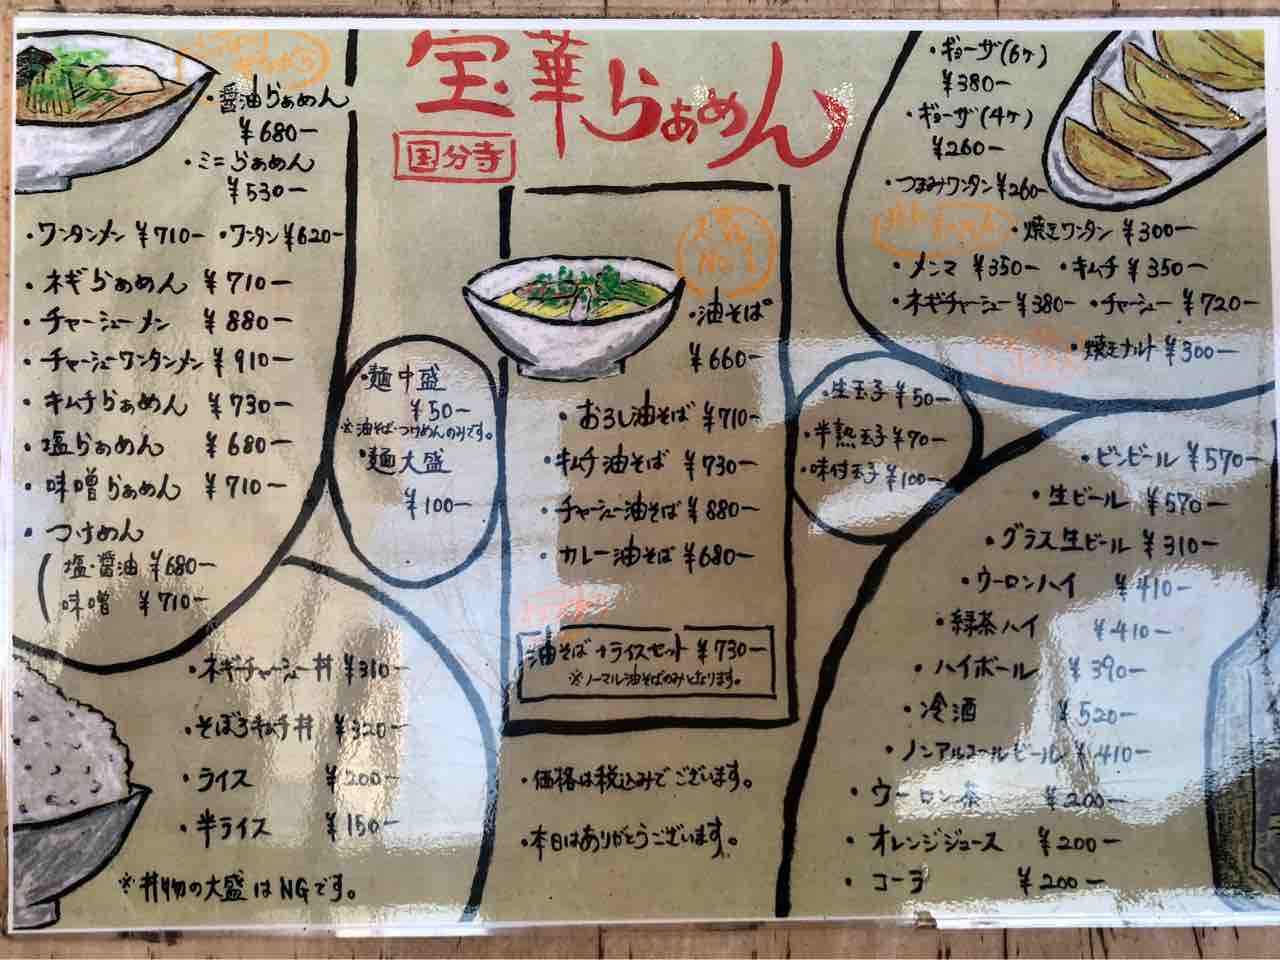 宝華らぁめん
国分寺
・醤油らぁめん
¥680ー
・ミニらぁめん
¥530ー
・ワンタンメン ¥710ー ・ワンタン ¥620ー
・ネギらぁめん ¥710ー
・チャーシューメン ¥880ー
・チャーシューワンタンメン ¥910ー
・キムチらぁめん ¥730ー
・塩らぁめん ¥680ー
・味噌らぁめん ¥710ー
・つけめん
(塩・醤油 ¥680ー
味噌 ¥710ー
・麺中盛
¥50ー
※油そば・つけめんのみです。
・麺大盛
¥100ー
人気
No.1
・油そば
¥660ー
・おろし油そば ¥710ー
・キムチ油そば ¥730ー
・チャーシュー油そば ¥880ー
・カレー油そば ¥680ー
油そば+ライスセット ¥730ー
※ノーマル油そばのみとなります。
・価格は税込みでございます。
・本日はありがとうございます。
・ギョーザ(6ヶ)
¥380ー
・ギョーザ(4ヶ)
¥260ー
・つまみワンタン ¥260ー
・焼きワンタン ¥300ー
・メンマ ¥350ー ・キムチ ¥350ー
・ネギチャーシュー ¥380ー ・チャーシュー ¥720ー
・焼きナルト ¥300ー
・生玉子 ¥50ー
・半熟玉子 ¥70ー
・味付玉子 ¥100ー
・ビンビール ¥570ー
・生ビール ¥570ー
・グラス生ビール ¥310ー
・ウーロンハイ ¥410ー
・緑茶ハイ ¥410ー
・ハイボール ¥390ー
・冷酒 ¥520ー
・ノンアルコールビール ¥410ー
・ウーロン茶 ¥200ー
・オレンジジュース ¥200ー
・コーラ ¥200ー
・ネギチャーシュー丼 ¥310ー
・そぼろキムチ丼 ¥320ー
・ライス ¥200ー
・半ライス ¥150ー
※丼物の大盛はNGです。